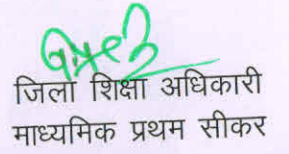 जिला शिक्षा अधिकारी
माध्यमिक प्रथम सीकर